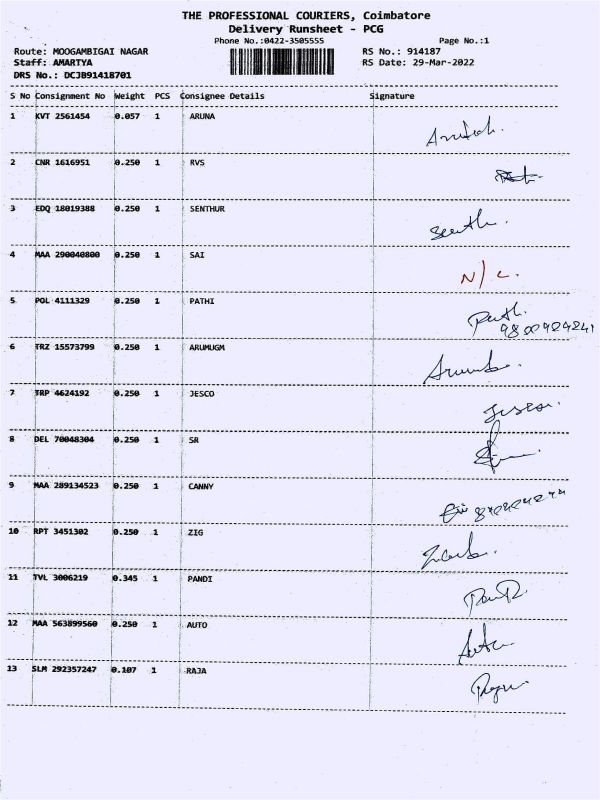 THE PROFESSIONAL COURIERS, Coimbatore
Delivery Runsheet - PCG
Phone No.:0422-3505555 Page No.:1
Route: MOOGAMBIGAI NAGAR RS No.: 914187
Staff: AMARTYA RS Date: 29-Mar-2022
DRS No.: DCJB91418701
S No Consignment No Weight PCS Consignee Details Signature
1 KVT 2561454 0.057 1 ARUNA
2 CNR 1616951 0.250 1 RVS
3 EDQ 18019388 0.250 1 SENTHUR
4 MAA 290040800 0.250 1 SAI N/C.
5 POL 4111329 0.250 1 PATHI
6 TRZ 15573799 0.250 1 ARUMUGM
7 TRP 4624192 0.250 1 JESCO
8 DEL 70048304 0.250 1 SR
9 MAA 289134523 0.250 1 CANNY
10 RPT 3451302 0.250 1 ZIG
11 TVL 3006219 0.345 1 PANDI
12 MAA 563899560 0.250 1 AUTO
13 SLM 292357247 0.107 1 RAJA